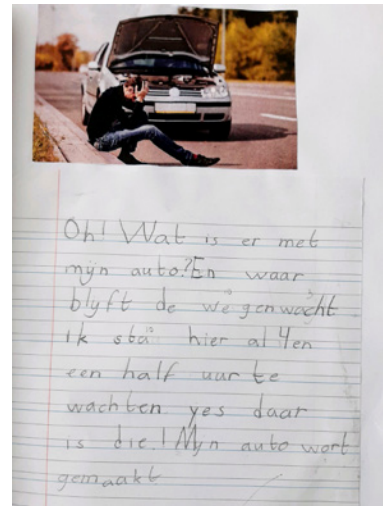 Oh! Wat is er met
mijn auto? En waar
blyft de wegenwacht
ik sta hier al 4en
een half uur te
wachten. yes daar
is die.! Mijn auto wort
gemaakt